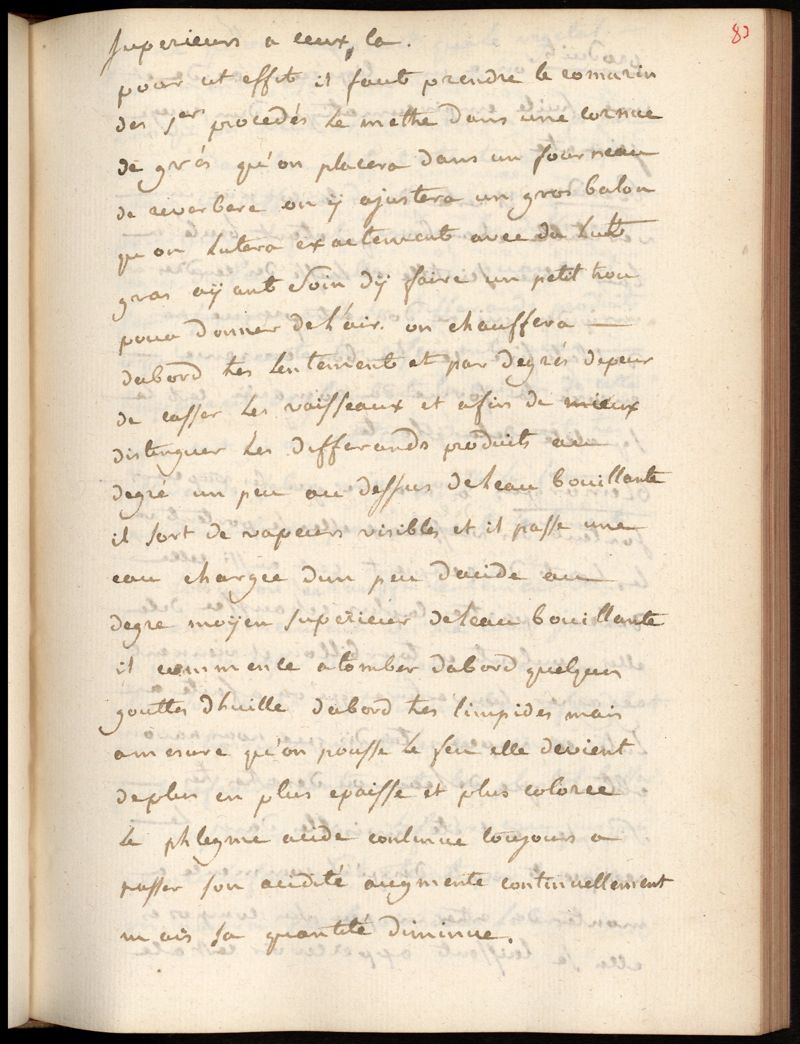 83
superieurs a ceux, la.
pour cet effet il faut prendre le romarin
des 1er procedés le mettre dans une cornue
de grés qu'on placera dans un fourneau
de reverbere on ÿ ajustera un gros balon
qu'on lutera exactement avec du lut
gras aÿant soin dÿ faire un petit trou
pour donner de l'air. on chauffera —
dabord tres lentement et par degrés depeur
de casser les vaisseaux et afin de mieux
distinguer les differands produits au
degré un peu au dessus deleau bouillante
il sort de vapeurs visibles et il passe une
eau chargee dun peu dacide au
degre moÿen superieur deleau bouillante
il commence a tomber dabord quelques
gouttes dhuille dabord tres limpides mais
amesure qu'on pousse le feu elle devient
deplus en plus epaisse et plus coloree
le phlegme acide continue toujours a
passer son acidité augmente continuellement
mais sa quantité diminue.